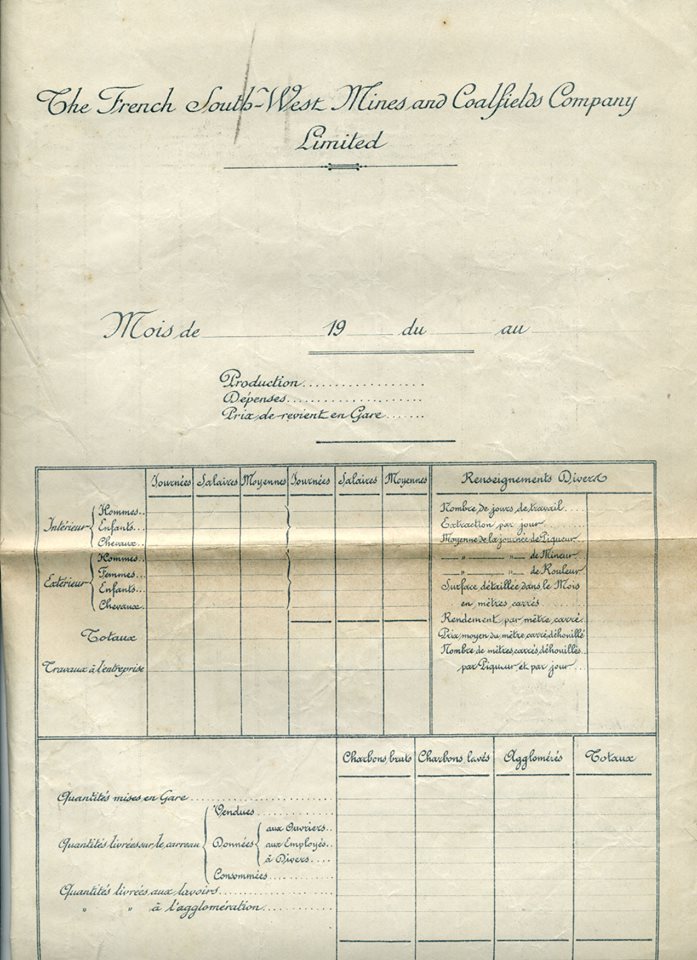 The French South-West Mines and Coalfields Company
Limited
Mois de 19 du au
Production
Dépenses
Prix de revient en Gare
Journées Salaires Moyennes Journées Salaires Moyennes Renseignements Divers
Intérieur
Hommes
Enfants
Chevaux
Extérieur
Hommes
Femmes
Enfants
Chevaux
Totaux
Travaux à l'entreprise
Nombre de jours de travail
Extraction par jour
Moyenne de la journée de Piqueur
" " de Mineur
" " de Rouleur
Surface détaillée dans le Mois
en mètres carrés
Rendement par mètre carré
Prix moyen du mètre carré déhouillé
Nombre de mètres carrés déhouillés
par Piqueur et par jour
Charbons bruts Charbons lavés Agglomérés Totaux
Quantités mises en Gare
Quantités livrées sur le carreau
Vendues
Données
aux Ouvriers
aux Employés
à Divers
Consommées
Quantités livrées aux lavoirs
" " à l'agglomération